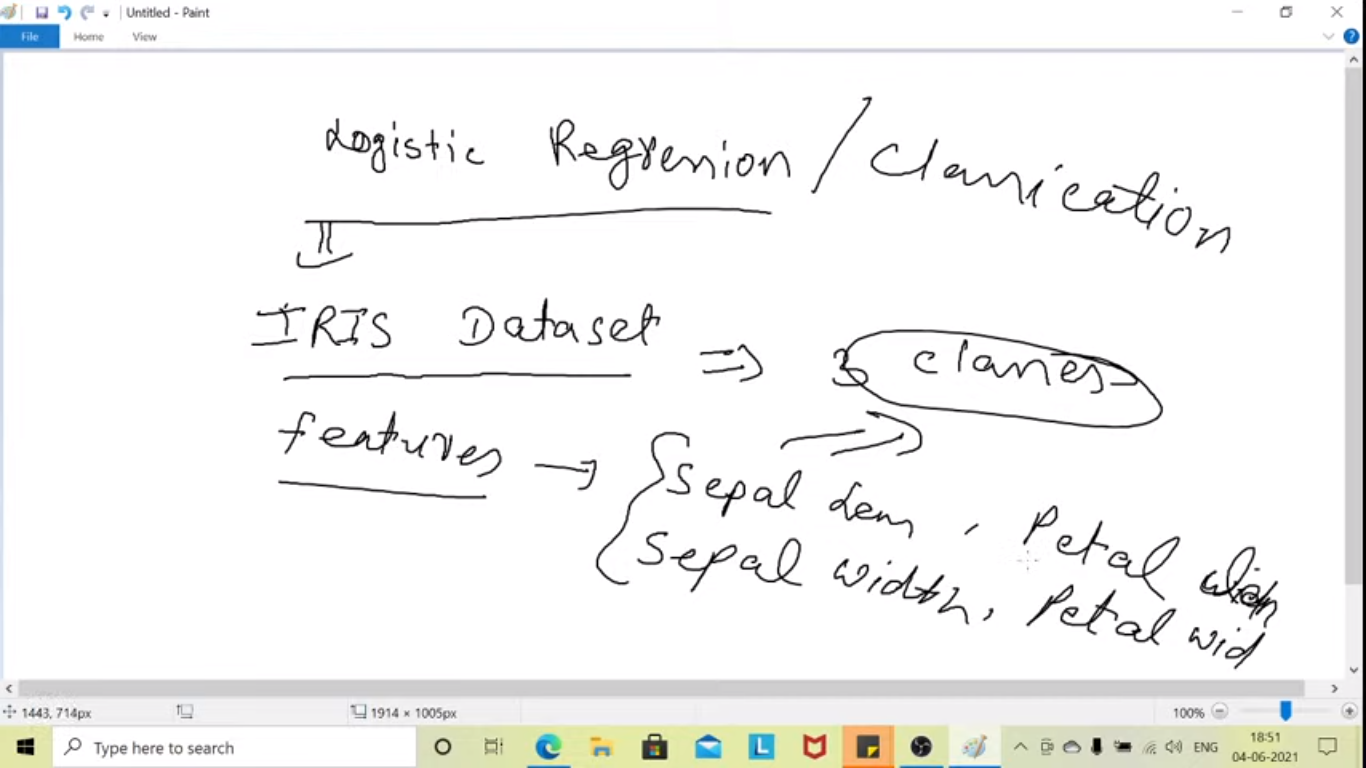 Untitled - Paint
File Home View
Logistic Regression / Classication
IRIS Dataset ⇒ 3 classes
features → { Sepal Len , Petal
Sepal width, Petal wid
1443, 714px 1914 × 1005px 100%
Type here to search L ENG 18:51
04-06-2021